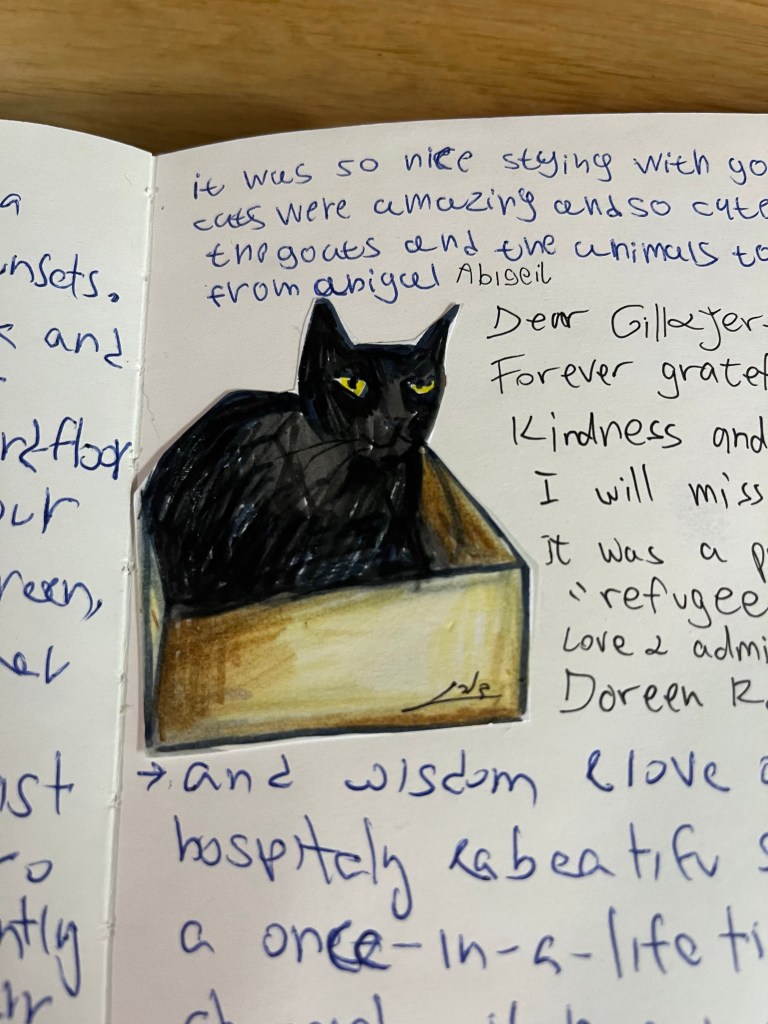 a
nsets.
and
floor
our
reen,
it was so nice stying with yo
cats were amazing and so cute
the goats and the animals to
from abigal Abigeil
Dear Gill & Jer-
Forever gratef
Kindness and
I will miss
it was a p
"refugee
Love & admi
Doreen R.
→ and wisdom & love
hospitaly & a beatifu s
a once-in-a-life ti
ost
ro
ntly